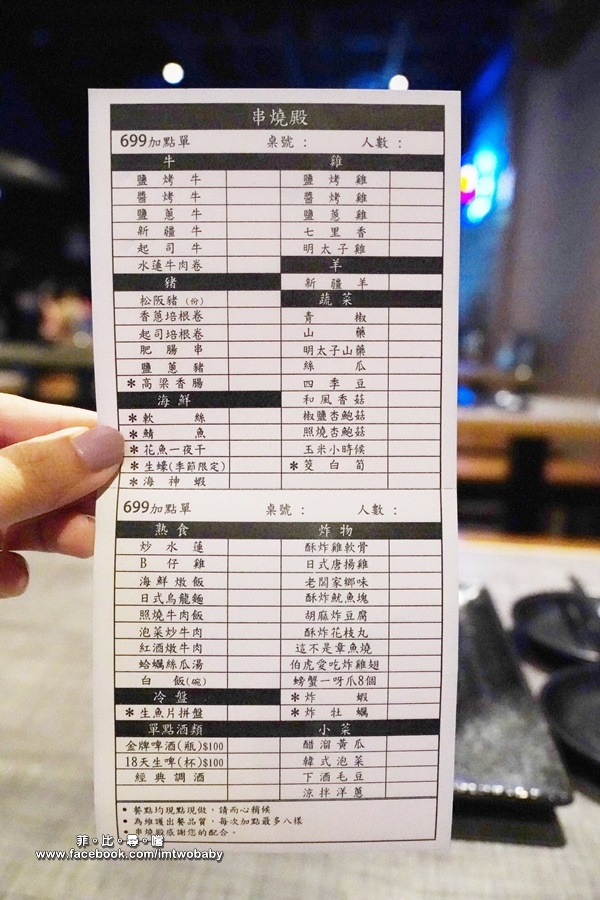 串燒殿
699加點單 桌號： 人數：
牛 雞
鹽烤牛 鹽烤雞
醬烤牛 醬烤雞
鹽蔥牛 鹽蔥雞
新疆牛 七里香
起司牛 明太子雞
水蓮牛肉卷 羊
豬 新疆羊
松阪豬(份) 蔬菜
香蔥培根卷 青椒
起司培根卷 山藥
肥腸串 明太子山藥
鹽蔥豬 絲瓜
＊高梁香腸 四季豆
海鮮 和風香菇
＊軟絲 椒鹽杏鮑菇
＊鯖魚 照燒杏鮑菇
＊花魚一夜干 玉米小時候
＊生蠔(季節限定) ＊筊白筍
＊海神蝦
699加點單 桌號： 人數：
熟食 炸物
炒水蓮 酥炸雞軟骨
B仔雞 日式唐揚雞
海鮮燉飯 老闆家鄉味
日式烏龍麵 酥炸魷魚塊
照燒牛肉飯 胡麻炸豆腐
泡菜炒牛肉 酥炸花枝丸
紅酒燉牛肉 這不是章魚燒
蛤蠣絲瓜湯 伯虎愛吃炸雞翅
白飯(碗) 螃蟹一呀爪8個
冷盤 ＊炸蝦
＊生魚片拼盤 ＊炸牡蠣
單點酒類 小菜
金牌啤酒(瓶)$100 醋溜黃瓜
18天生啤(杯)$100 韓式泡菜
經典調酒 下酒毛豆
涼拌洋蔥
• 餐點均現點現做，請耐心稍候
• 為維護出餐品質，每次加點最多八樣
• 串燒殿感謝您的配合。
菲。比。尋。嚐
www.facebook.com/imtwobaby